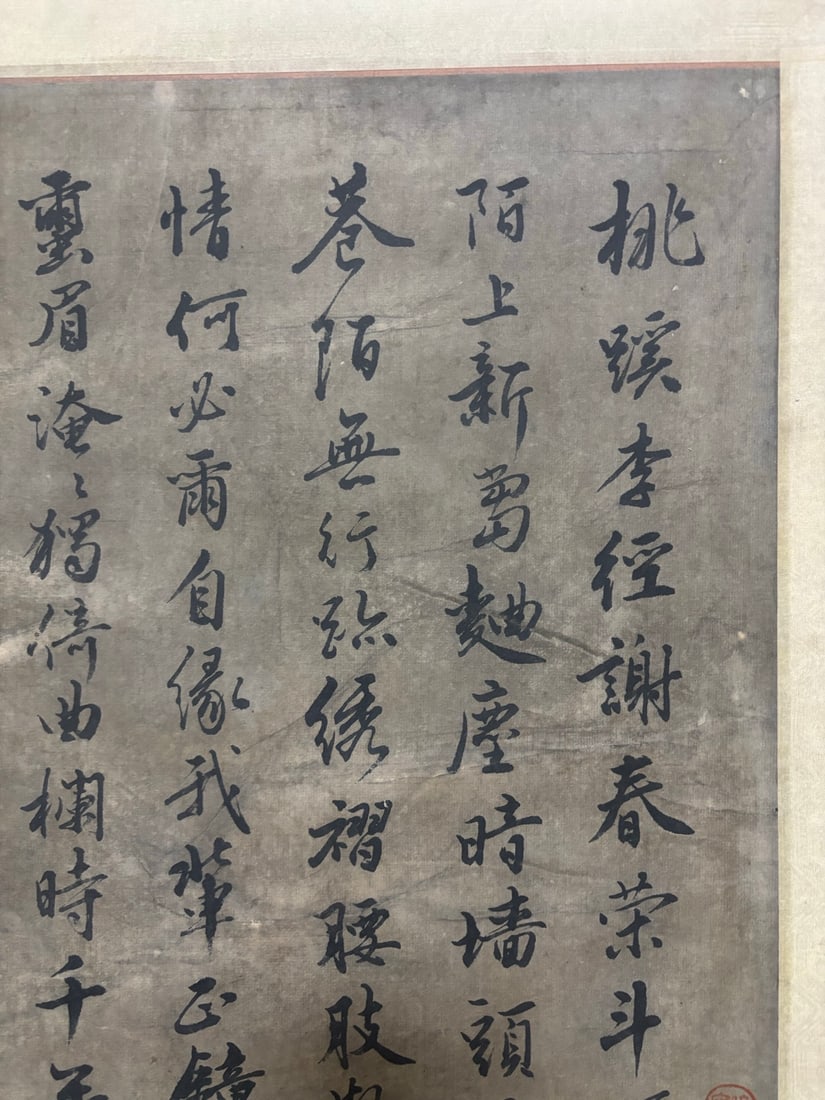 桃蹊李徑謝春荣斗
陌上新麴塵暗墙頭
巷陌無行跡绣褶腰肢
情何必爾自緣我輩正鍾
眉淹々獨倚曲欄時千